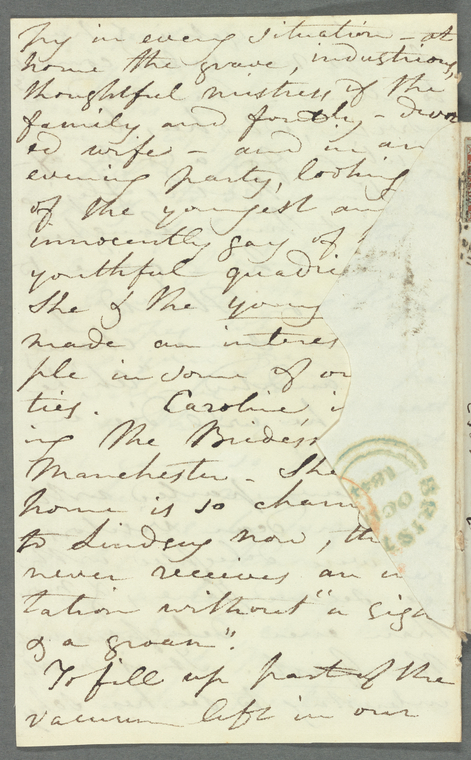 py in every situation - at
home the grave, industrious,
thoughtful mistress of the
family and fondly - devot
ed wife - and in an
evening party, looking
of the youngest and
innocently gay of
youthful quadri
She & the young
made an interes
ple in some of ou
ties. Caroline i
ing the Bride's
Manchester - She
home is so charm
to Lindsey now, th
never receives an in
tation without "a sigh
& a groan".
To fill up part of the
vacuum left in our